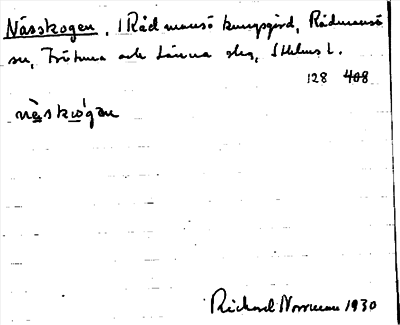 Nässkogen, i Rådmansö kungsgård, Rådmansö
sn, Frötuna och Länna slg, Sthlms l.
128 408
nässkogan
Richard Norrman 1930